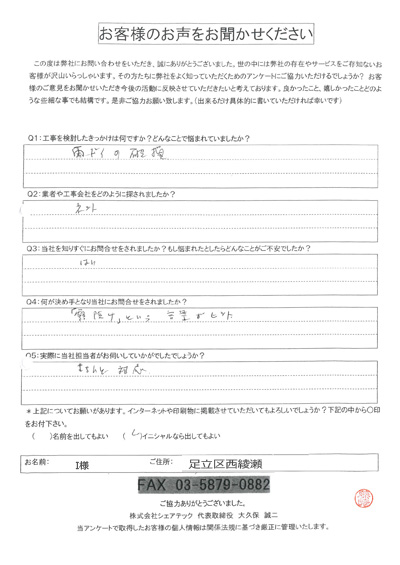 お客様のお声をお聞かせください
この度は弊社にお問い合わせをいただき、誠にありがとうございました。世の中には弊社の存在やサービスをご存知ないお
客様が沢山いらっしゃいます。その方たちに弊社をよく知っていただくためのアンケートにご協力いただけるでしょうか？お客
様のご意見をお聞かせいただき今後の活動に反映させていただきたいと考えております。良かったこと、嬉しかったことどのよ
うな些細な事でも結構です。是非ご協力お願い致します。（出来るだけ具体的に書いていただければ幸いです）
Q1：工事を検討したきっかけは何ですか？どんなことで悩まれていましたか？
雨ドイの破損
Q2：業者や工事会社をどのように探されましたか？
ネット
Q3：当社を知りすぐにお問合せをされましたか？もし悩まれたとしたらどんなことがご不安でしたか？
はい
Q4：何が決め手となり当社にお問合せをされましたか？
という言葉がヒント
Q5：実際に当社担当者がお伺いしていかがでしたでしょうか？
きちんと対応
＊上記についてお願いがあります。インターネットや印刷物に掲載させていただいてもよろしいでしょうか？下記の中から〇印
をお付下さい。
（　）名前を出してもよい　（　）イニシャルなら出してもよい
お名前：　I様　ご住所：　足立区西綾瀬
FAX 03-5879-0882
ご協力ありがとうございました。
株式会社シェアテック 代表取締役 大久保 誠二
当アンケートで取得したお客様の個人情報は関係法規に基づき厳正に管理いたします。